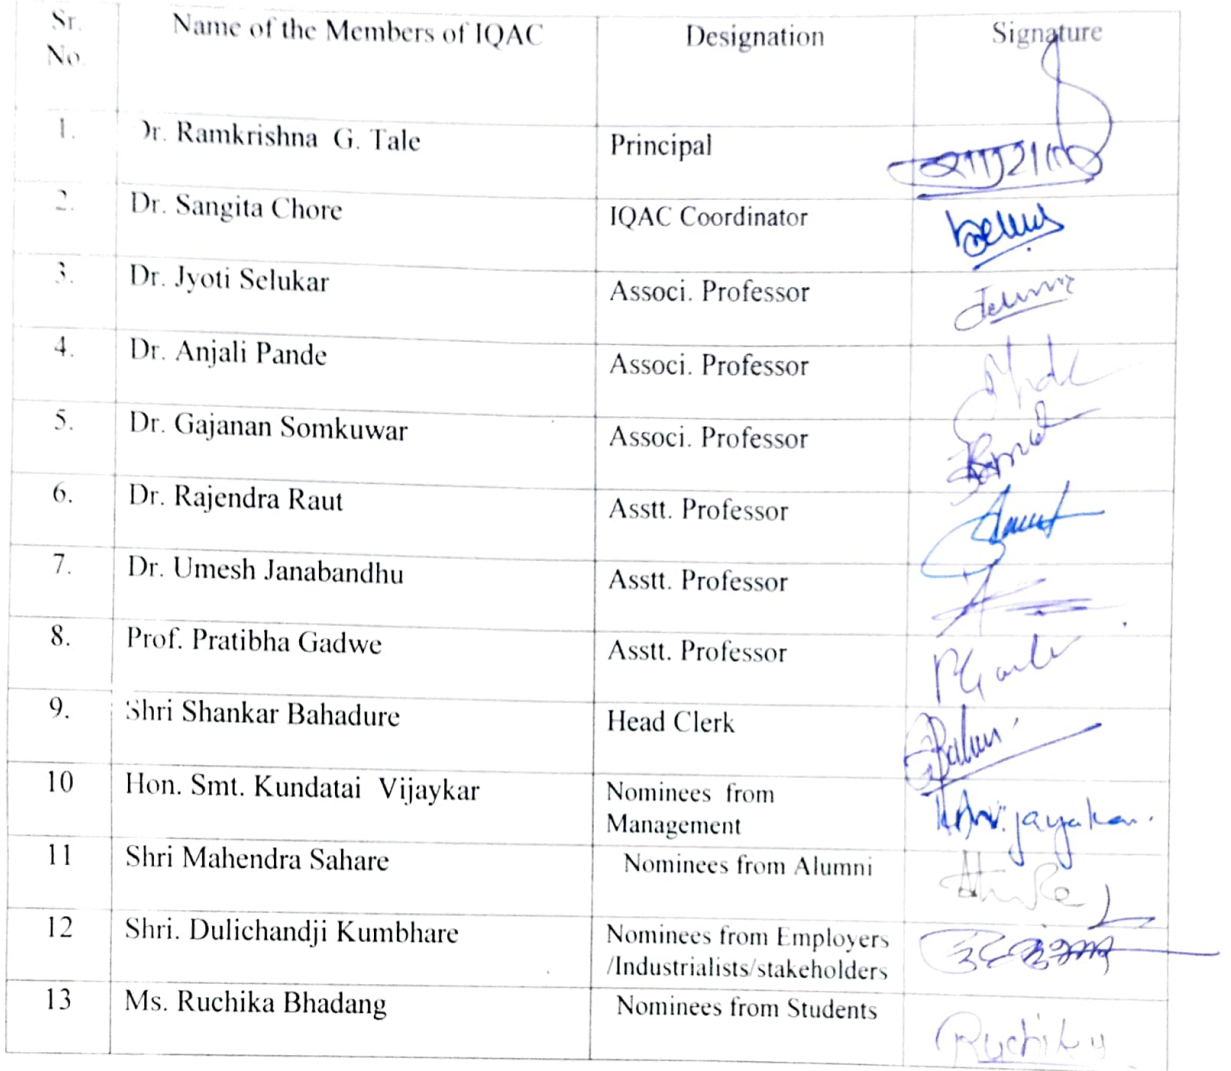 Sr. No. Name of the Members of IQAC Designation Signature
1. Dr. Ramkrishna G. Tale Principal
2. Dr. Sangita Chore IQAC Coordinator
3. Dr. Jyoti Selukar Associ. Professor
4. Dr. Anjali Pande Associ. Professor
5. Dr. Gajanan Somkuwar Associ. Professor
6. Dr. Rajendra Raut Asstt. Professor
7. Dr. Umesh Janabandhu Asstt. Professor
8. Prof. Pratibha Gadwe Asstt. Professor
9. Shri Shankar Bahadure Head Clerk
10 Hon. Smt. Kundatai Vijaykar Nominees from
Management
11 Shri Mahendra Sahare Nominees from Alumni
12 Shri. Dulichandji Kumbhare Nominees from Employers
/Industrialists/stakeholders
13 Ms. Ruchika Bhadang Nominees from Students
Ruchika